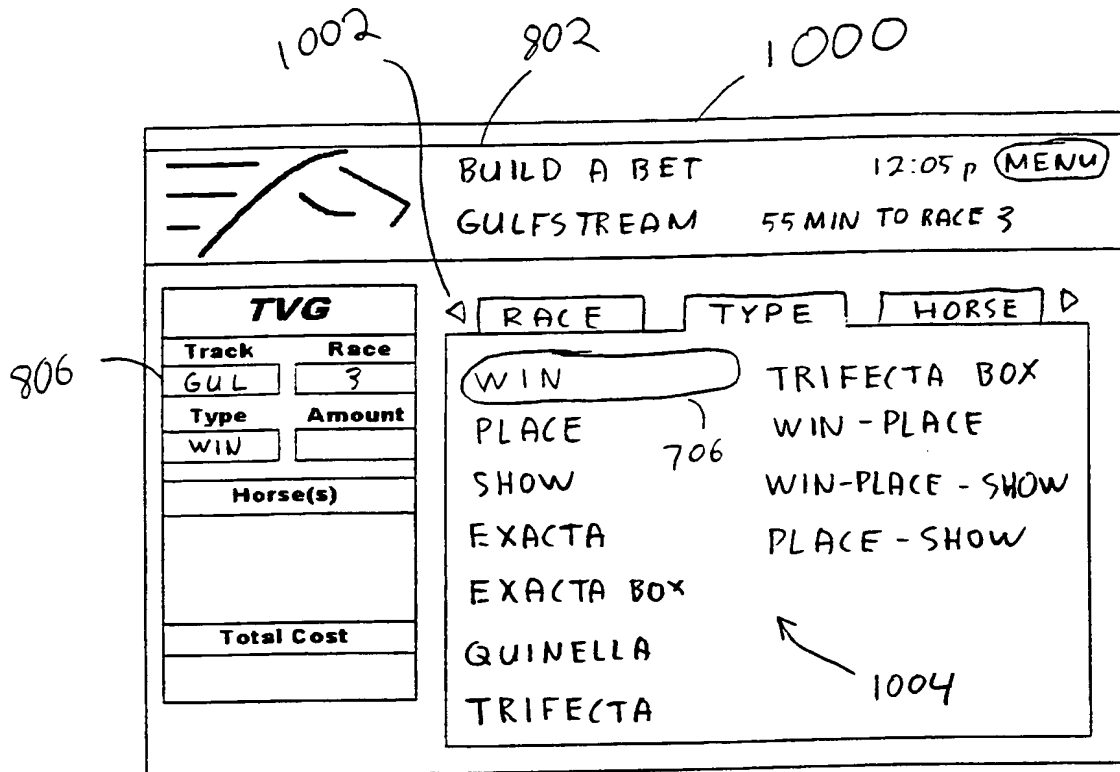 1002 802 1000
BUILD A BET 12:05 p MENU
GULFSTREAM 55 MIN TO RACE 3
TVG
Track Race
GUL 3
Type Amount
WIN
Horse(s)
Total Cost
806
RACE TYPE HORSE
WIN
PLACE
SHOW
EXACTA
EXACTA BOX
QUINELLA
TRIFECTA
TRIFECTA BOX
WIN - PLACE
WIN-PLACE - SHOW
PLACE - SHOW
706
1004